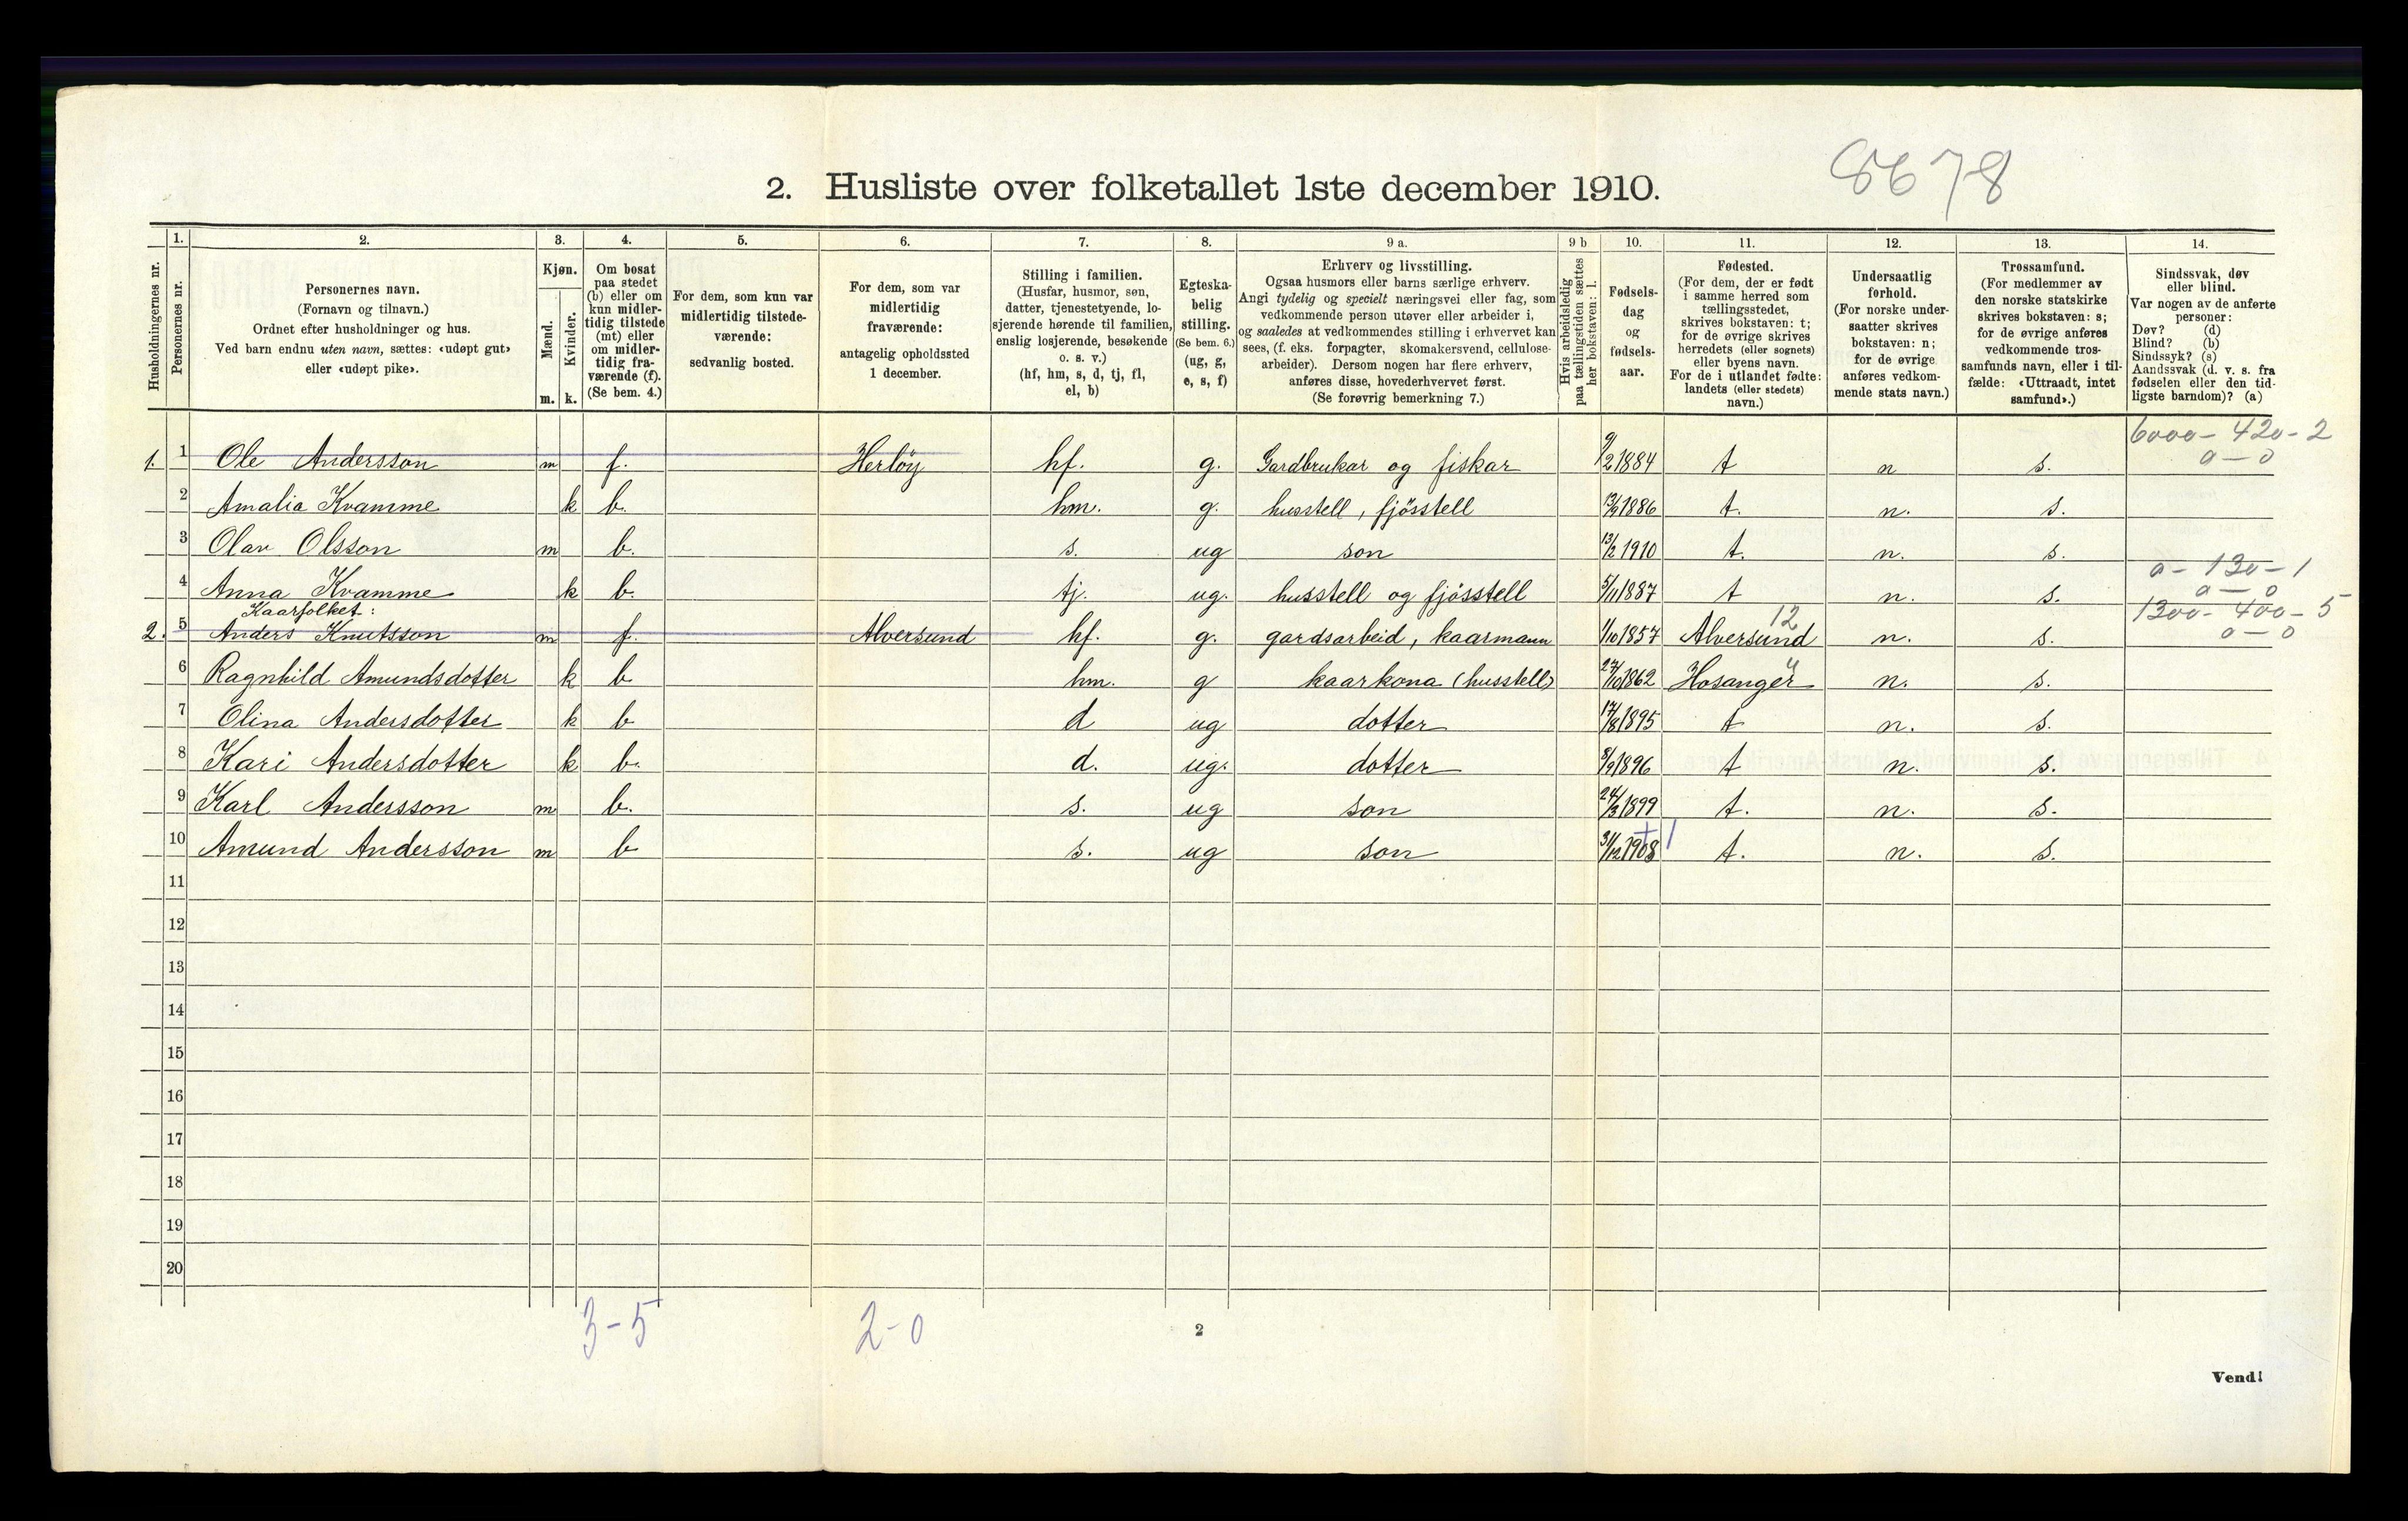 8678
2. Husliste over folketallet 1ste december 1910.
1. 2. 3. 4. 5. 6. 7. 8. 9 a. 9 b 10. 11. 12. 13. 14.
Husholdningernes nr.
Personernes nr.
Personernes navn.
(Fornavn og tilnavn.)
Ordnet efter husholdninger og hus.
Ved barn endnu uten navn, sættes: «udøpt gut»
eller «udøpt pike».
Kjøn.
Mænd.
Kvinder.
m. k.
Om bosat
paa stedet
(b) eller om
kun midler-
tidig tilstede
(mt) eller
om midler-
tidig fra-
værende (f).
(Se bem. 4.)
For dem, som kun var
midlertidig tilstede-
værende:
sedvanlig bosted.
For dem, som var
midlertidig
fraværende:
antagelig opholdssted
1 december.
Stilling i familien.
(Husfar, husmor, søn,
datter, tjenestetyende, lo-
sjerende hørende til familien,
enslig losjerende, besøkende
o. s. v.)
(hf, hm, s, d, tj, fl,
el, b)
Egteska-
belig
stilling.
(Se bem. 6.)
(ug, g,
e, s, f)
Erhverv og livsstilling.
Ogsaa husmors eller barns særlige erhverv.
Angi tydelig og specielt næringsvei eller fag, som
vedkommende person utøver eller arbeider i,
og saaledes at vedkommendes stilling i erhvervet kan
sees, (f. eks. forpagter, skomakersvend, cellulose-
arbeider). Dersom nogen har flere erhverv,
anføres disse, hovederhvervet først.
(Se forøvrig bemerkning 7.)
Hvis arbeidsledig
paa tællingstiden sættes
her bokstaven: l.
Fødsels-
dag
og
fødsels-
aar.
Fødested.
(For dem, der er født
i samme herred som
tællingsstedet,
skrives bokstaven: t;
for de øvrige skrives
herredets (eller sognets)
eller byens navn.
For de i utlandet fødte:
landets (eller stedets)
navn.)
Undersaatlig
forhold.
(For norske under-
saatter skrives
bokstaven: n;
for de øvrige
anføres vedkom-
mende stats navn.)
Trossamfund.
(For medlemmer av
den norske statskirke
skrives bokstaven: s;
for de øvrige anføres
vedkommende tros-
samfunds navn, eller i til-
fælde: «Uttraadt, intet
samfund».)
Sindssvak, døv
eller blind.
Var nogen av de anførte
personer:
Døv? (d)
Blind? (b)
Sindssyk? (s)
Aandssvak (d. v. s. fra
fødselen eller den tid-
ligste barndom)? (a)
6000 - 420 - 2
0 - 0
1. 1 Ole Andersson m f. Herløy hf. g. Gardbrukar og fiskar 9/2 1884 t n s.
2 Amalia Kvamme k b. hm. g. husstell, fjösstell 13/9 1886 t. n. s.
3 Olav Olsson m b. s. ug son 13/2 1910 t. n. s.
0 - 130 - 1
0 - 0
4 Anna Kvamme k b. tj. ug. husstell og fjösstell 5/11 1887 t n. s.
Kaarfolket: 12 1300 - 400 - 5
0 - 0
2. 5 Anders Knutsson m f. Alversund hf. g. gardsarbeid, kaarmann 1/10 1857 Alversund n. s.
6 Ragnhild Amundsdotter k b hm. g kaarkona (husstell) 27/10 1862 Hosanger n. s.
7 Olina Andersdotter k b d ug dotter 17/8 1895 t n. s.
8 Kari Andersdotter k b. d. ug. dotter 8/9 1896 t n. s.
9 Karl Andersson m b. s. ug son 24/3 1899 t. n. s.
10 Amund Andersson m b s. ug son 31/12 1908 t. n. s.
11
12
13
14
15
16
17
18
19
20
3-5 2-0
2
Vend!